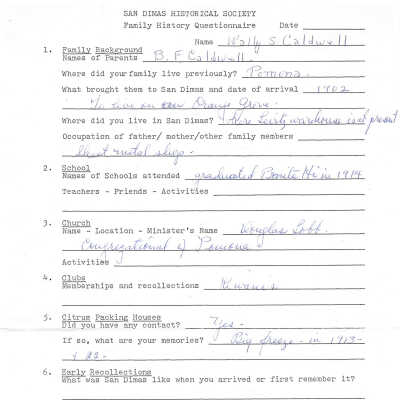 SAN DIMAS HISTORICAL SOCIETY
Family History Questionnaire Date
Name Wally S Caldwell
1. Family Background
Names of Parents B. F. Caldwell.
Where did your family live previously? Pomona.
What brought them to San Dimas and date of arrival 1902
To live on our Orange Grove.
Where did you live in San Dimas? Where warehouse is at present
Occupation of father/ mother/other family members
Sheet metal shop.
2. School
Names of Schools attended graduated Bonita Hi in 1914
Teachers - Friends - Activities
3. Church
Name - Location - Minister's Name Douglas
Congregational of Pomona
Activities
4. Clubs
Memberships and recollections Kiwanis
5. Citrus Packing Houses
Did you have any contact? Yes-
If so, what are your memories? Big freeze - in 1913-
+ 22-
6. Early Recollections
What was San Dimas like when you arrived or first remember it?